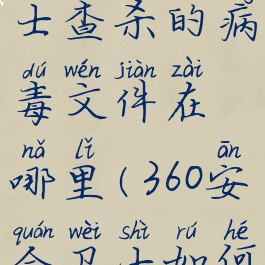 士查杀的病
dú wén jiàn zài
毒文件在
nǎ lǐ ān
哪里(360安
quán wèi shì rú hé
全卫士如何